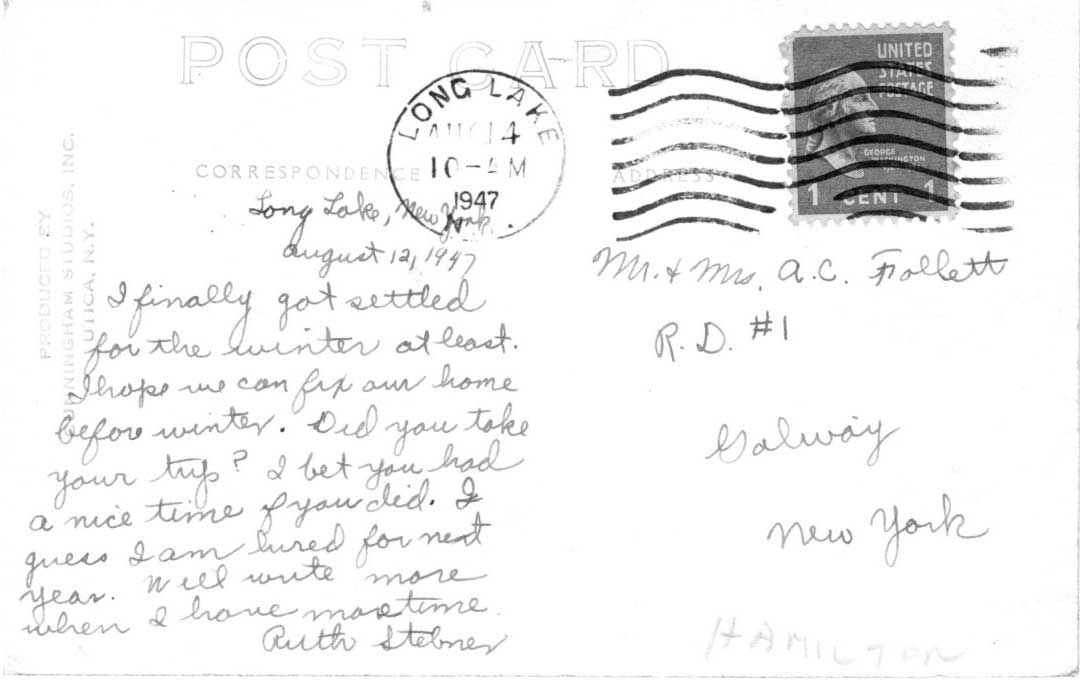 POST CARD
LONG LAKE
AUG 14
10-AM
1947
N.Y.
UNITED
STATES
POSTAGE
GEORGE
WASHINGTON
1 CENT 1
CORRESPONDENCE
ADDRESS
PRODUCED BY
CUNNINGHAM STUDIOS, INC.
UTICA, N.Y.
Long Lake, New York.
August 12, 1947
I finally got settled
for the winter at least.
I hope we can fix our home
before winter. Did you take
your trip? I bet you had
a nice time if you did. I
guess I am hired for next
year. Will write more
when I have more time.
Ruth Stebner
Mr. & Mrs. A.C. Follett
R.D. #1
Galway
New York
HAMILTON